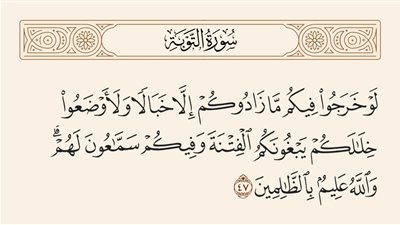 سُورَةُ التَّوْبَةِ
لَوْ خَرَجُوا۟ فِيكُم مَّا زَادُوكُمْ إِلَّا خَبَالًا وَلَأَوْضَعُوا۟
خِلَـٰلَكُمْ يَبْغُونَكُمُ ٱلْفِتْنَةَ وَفِيكُمْ سَمَّـٰعُونَ لَهُمْ ۗ
وَٱللَّهُ عَلِيمٌۢ بِٱلظَّـٰلِمِينَ ٤٧